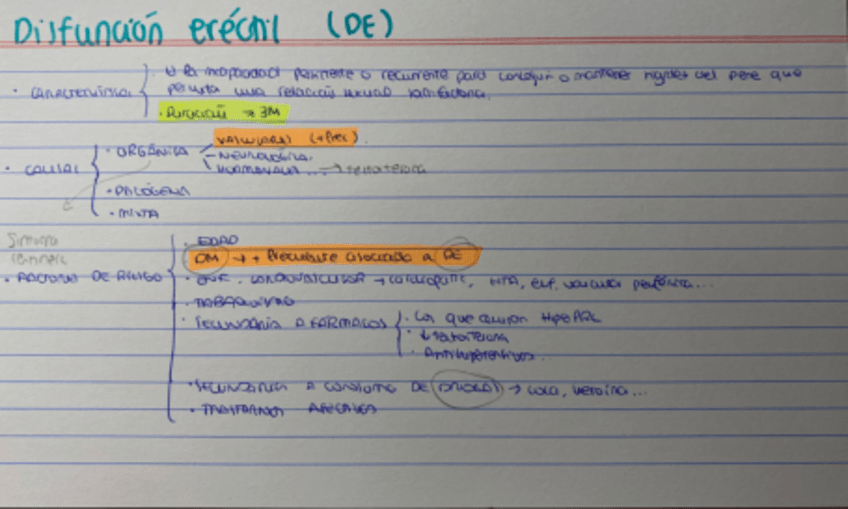 Disfunción eréctil (DE)
· CARACTERÍSTICAS · Es la incapacidad persistente o recurrente para conseguir o mantener rigidez del pene que
permita una relación sexual satisfactoria.
· Duración → 3M
· CAUSAS · ORGÁNICA VASCULARES (+ frec).
- NEUROLÓGICA.
HORMONALES ... → testosterona
· PSICÓGENA
· MIXTA
· EDAD
DM → + frecuente asociada a DE
· FACTORES DE RIESGO · ENF. CARDIOVASCULAR → cardiopatía, HTA, enf. vascular periférica...
· TABAQUISMO
· SECUNDARIA A FÁRMACOS · Los que causan HipePRL
· ↓ testosterona
· Antihipertensivos...
· SECUNDARIA A CONSUMO DE DROGAS → coca, heroína...
· TRASTORNOS AFECTIVOS